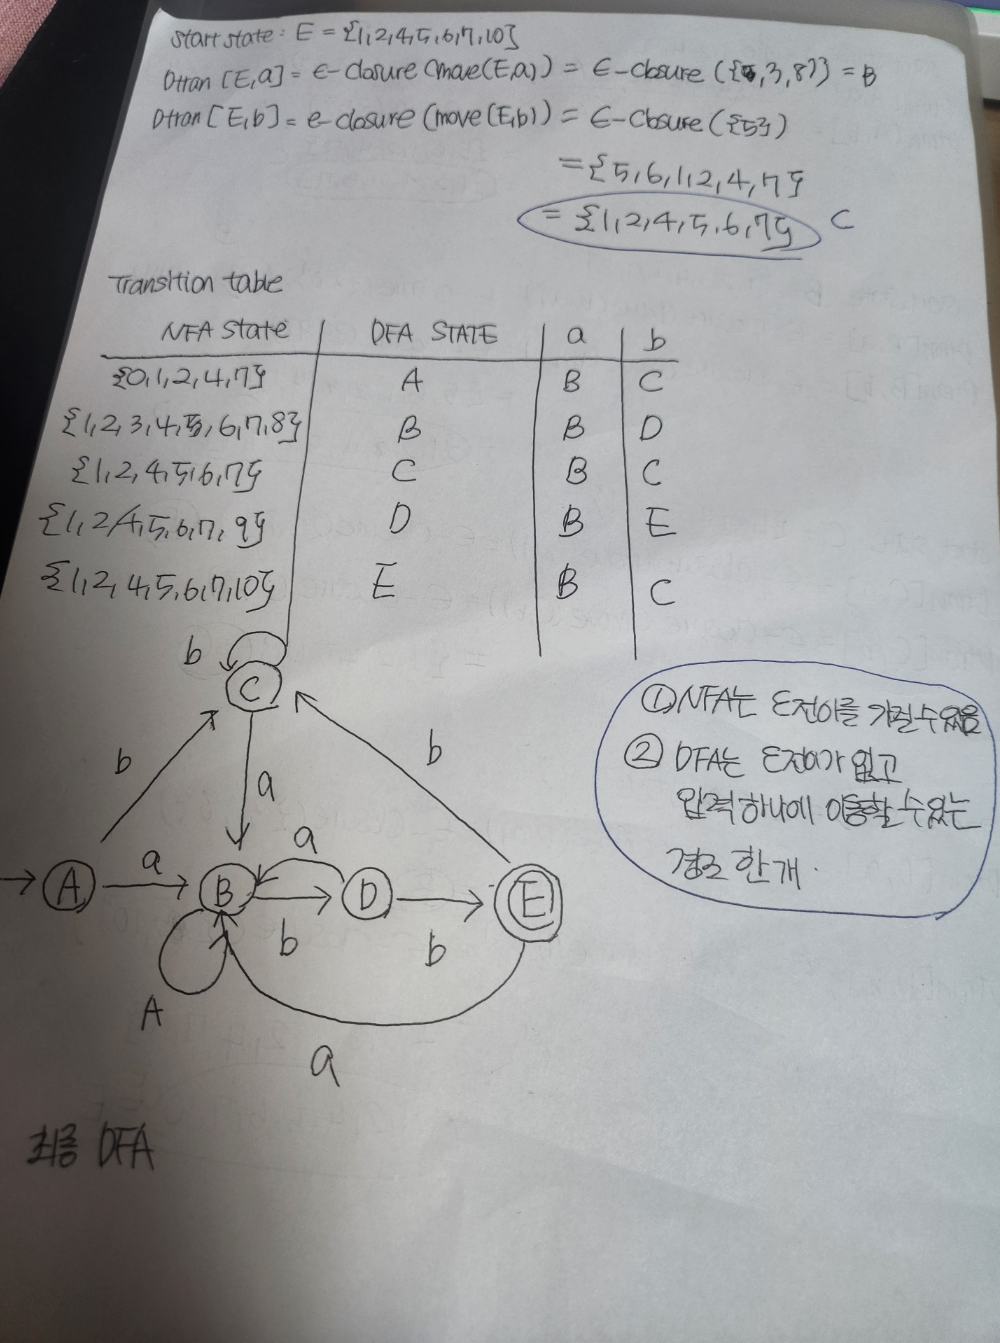 Start state: E = {1,2,4,5,6,7,10}
Dtran [E,a] = ϵ-closure (move(E,a)) = ϵ-closure ({3,8}) = B
Dtran [E,b] = e-closure (move(E,b)) = ϵ-closure ({5})
= {5,6,1,2,4,7}
= {1,2,4,5,6,7} C
Transition table
NFA State DFA STATE a b
{0,1,2,4,7} A B C
{1,2,3,4,5,6,7,8} B B D
{1,2,4,5,6,7} C B C
{1,2,4,5,6,7,9} D B E
{1,2,4,5,6,7,10} E B C
b
C
① NFA는 ε전이를 가질수있음
② DFA는 ε전이가 없고
입력 하나에 이동할 수 있는
경로 한개.
b
a
b
A
a
B
a
D
E
b
b
A
a
최종 DFA